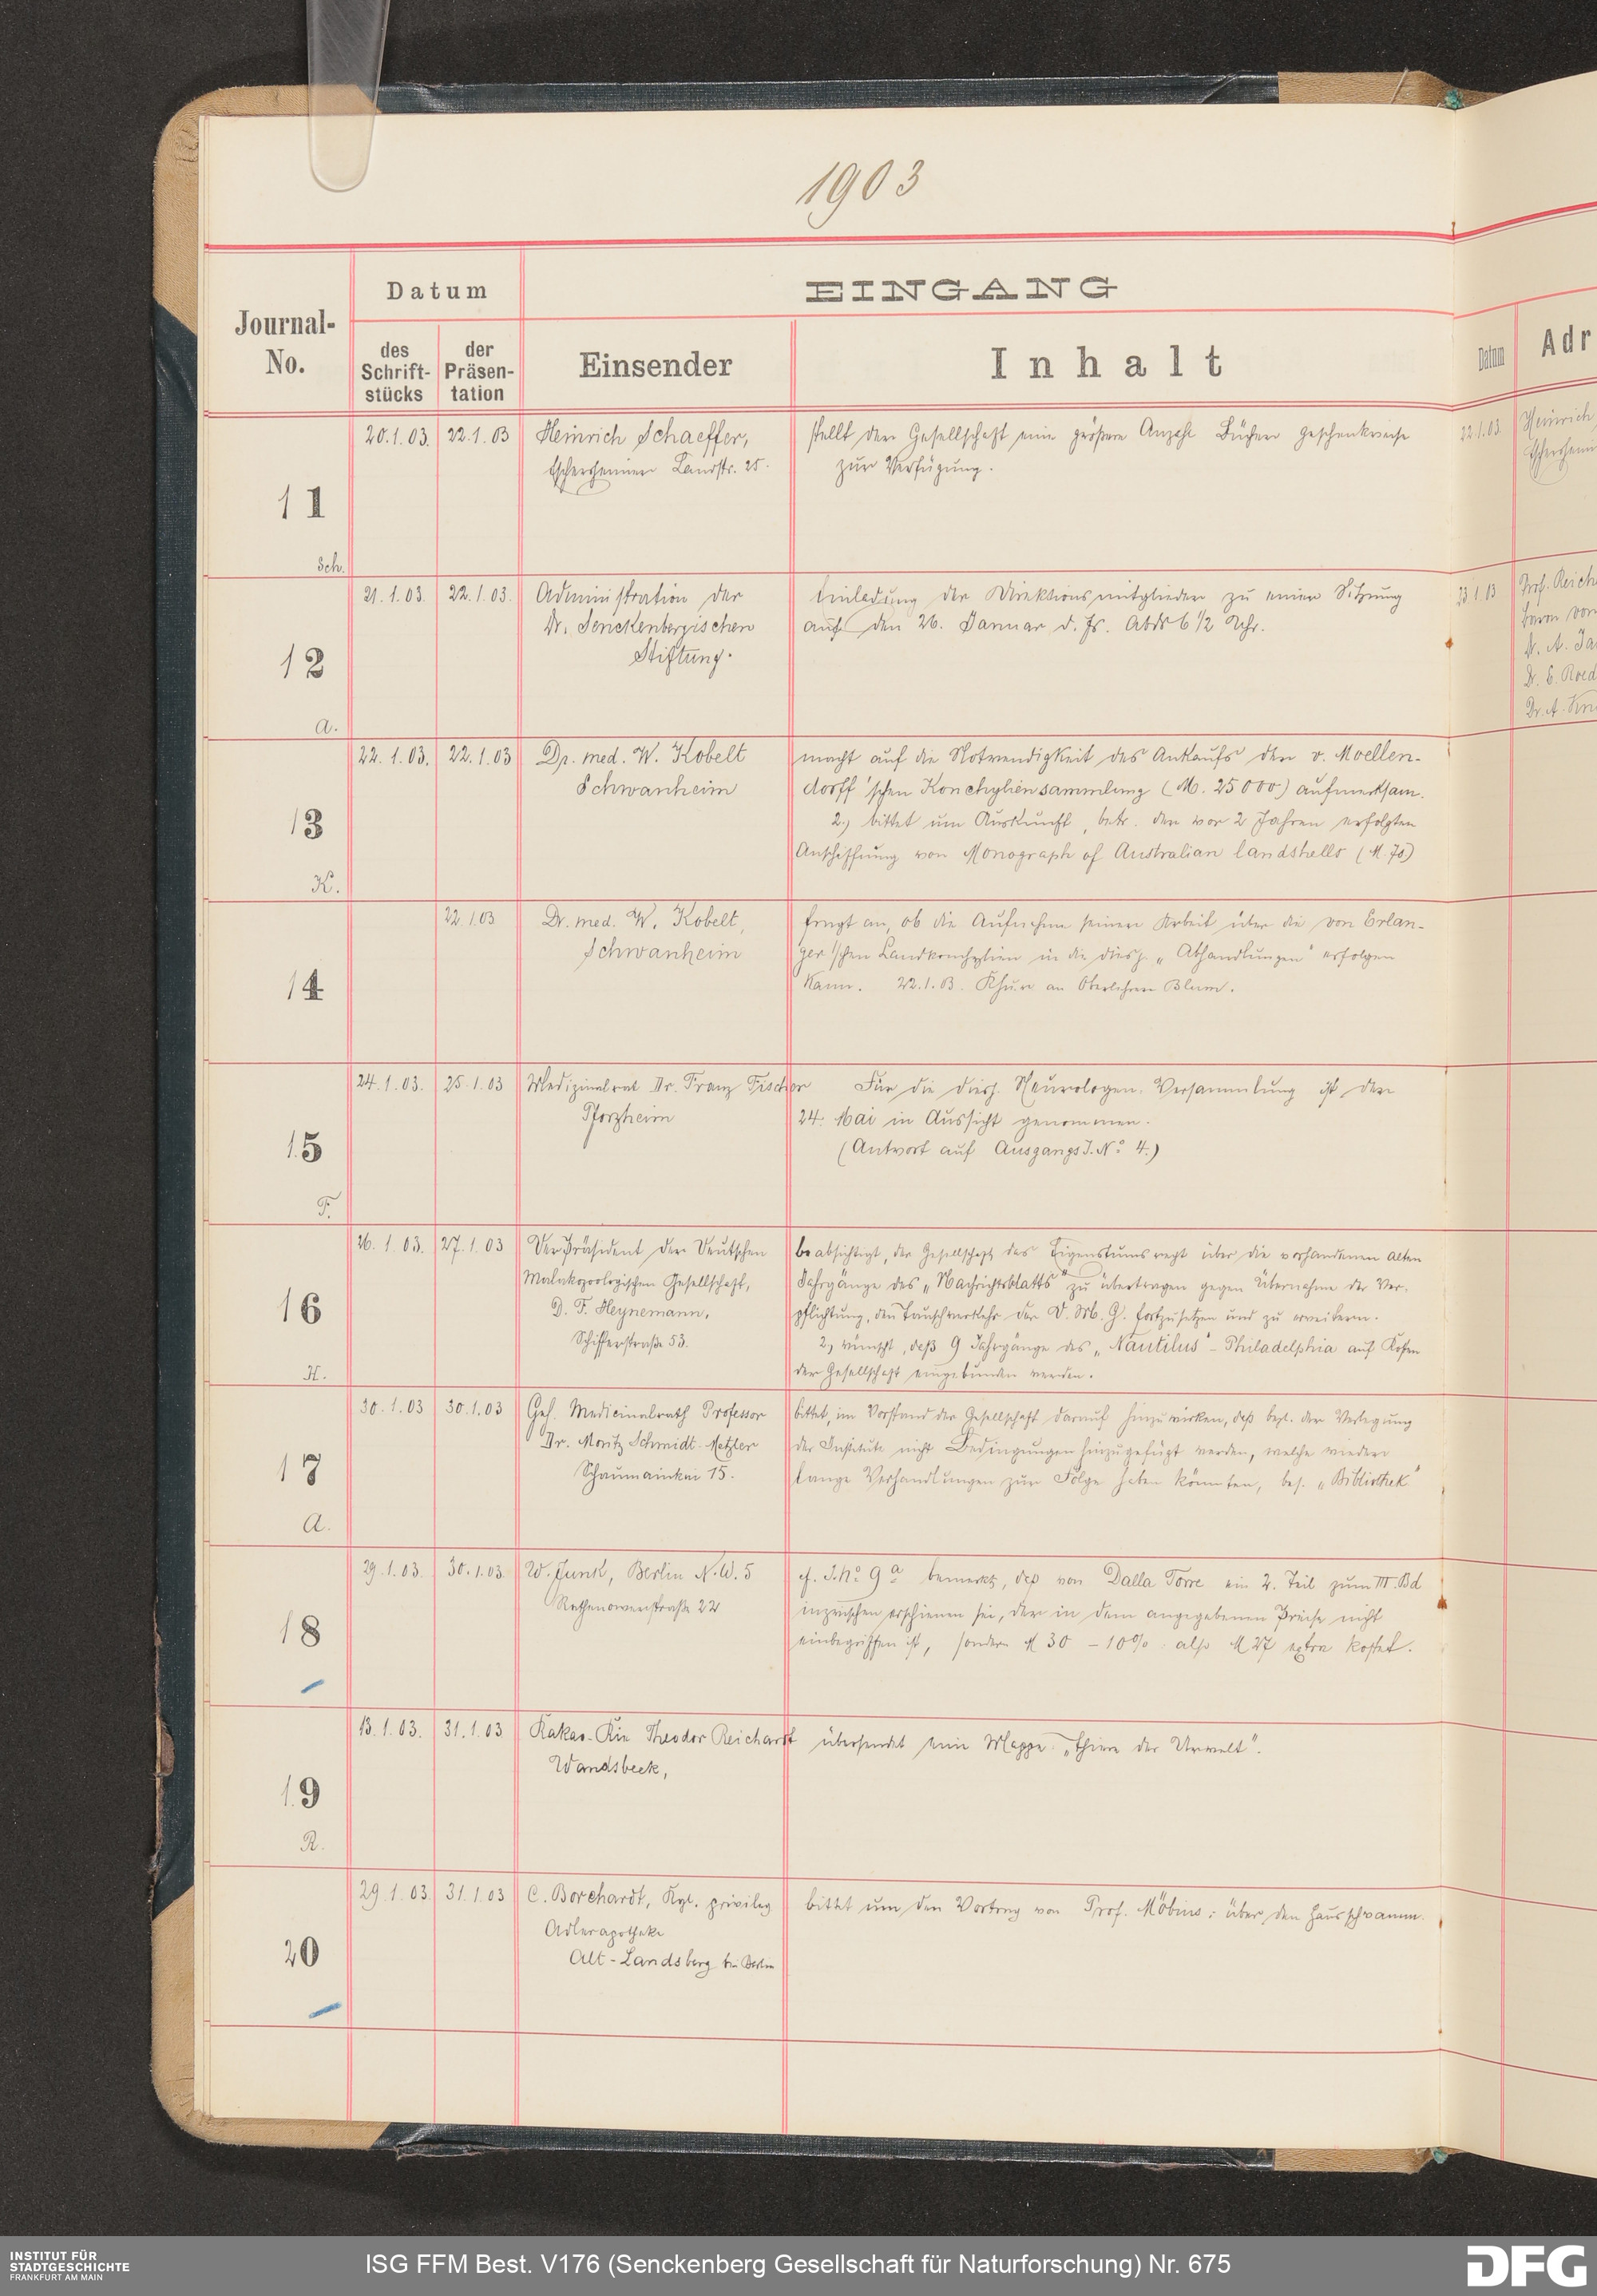 1903
Journal-
No.
Datum
des
Schrift-
stücks
der
Präsen-
tation
EINGANG
Einsender
Inhalt
Datum
Adr
11
Sch.
20.1.03.
22.1.03
Heinrich Schaeffer,
Eschersheimer Landstr. 25.
stellt der Gesellschaft eine größere Anzahl Bücher geschenkweise
zur Verfügung.
22.1.03
Heinrich
Eschersheim
12
A.
21.1.03.
22.1.03.
Administration der
Dr. Senckenbergischen
Stiftung.
Einladung der Direktionsmitglieder zu einer Sitzung
auf den 26. Januar d. Js. Abds 6 1/2 Uhr.
23.1.03
Prof. Reich
Baron von
Dr. A. Ja
Dr. E. Roed
Dr. A. Kn
13
K.
22.1.03.
22.1.03
Dr. med. W. Kobelt
Schwanheim
macht auf die Notwendigkeit des Ankaufs der v. Moellen-
dorff'schen Konchyliensammlung (M. 25000) aufmerksam.
2.) bittet um Auskunft, betr. der vor 2 Jahren erfolgten
Anschaffung von Monograph of Australian landshells (M. 70)
14
22.1.03
Dr. med. W. Kobelt,
Schwanheim
fragt an, ob die Aufnahme seiner Arbeit über die von Erlan-
ger'schen Landkonchylien in die diesj. „Abhandlungen" erfolgen
kann. 22.1.03. an Oberlehrer Blum.
15
F.
24.1.03.
25.1.03
Medizinalrat Dr. Franz Fischer
Pforzheim
Für die diesj. Neurologen-Versammlung ist der
24. Mai in Aussicht genommen.
(Antwort auf Ausgangs J. No 4.)
16
H.
26.1.03.
27.1.03
Der Präsident der Deutschen
Malakozoologischen Gesellschaft,
D. F. Heynemann,
Schifferstraße 53.
beabsichtigt, der Gesellschaft das Eigentumsrecht über die vorhandenen alten
Jahrgänge des „Nachrichtsblatts" zu übertragen gegen Übernahme der Ver-
pflichtung, den Tauschverkehr der D. M. G. fortzusetzen und zu erweitern.
2.) wünscht, daß 9 Jahrgänge des „Nautilus" - Philadelphia auf Kosten
der Gesellschaft eingebunden werden.
17
A.
30.1.03
30.1.03
Geh. Medicinalrath Professor
Dr. Moritz Schmidt-Metzler
Schaumainkai 15.
bittet, im Vorstand der Gesellschaft darauf hinzuwirken, daß bezl. der Verlegung
der Institute nicht Bedingungen hinzugefügt werden, welche wieder
lange Verhandlungen zur Folge haben könnten, bes. „Bibliothek"
18
29.1.03.
30.1.03.
W. Junk, Berlin N.W. 5
Rathenowerstraße 22
cf. J. No 9a bemerkt, daß von Dalla Torre ein 2. Teil zum III. Bd
inzwischen erschienen sei, der in dem angegebenen Preise nicht
einbegriffen ist, sondern M 30 - 10% also M 27 extra kostet.
19
R.
13.1.03.
31.1.03
Kakao-Kie Theodor Reichardt
Wandsbeck,
übersendet eine Mappe „Thiere der Urwelt".
20
29.1.03.
31.1.03
C. Borchardt, Kgl. privileg
Adlerapotheke
Alt-Landsberg bei Berlin
bittet um den Vortrag von Prof. Möbius: über den Hausschwamm.
INSTITUT FÜR
STADTGESCHICHTE
FRANKFURT AM MAIN
ISG FFM Best. V176 (Senckenberg Gesellschaft für Naturforschung) Nr. 675
DFG